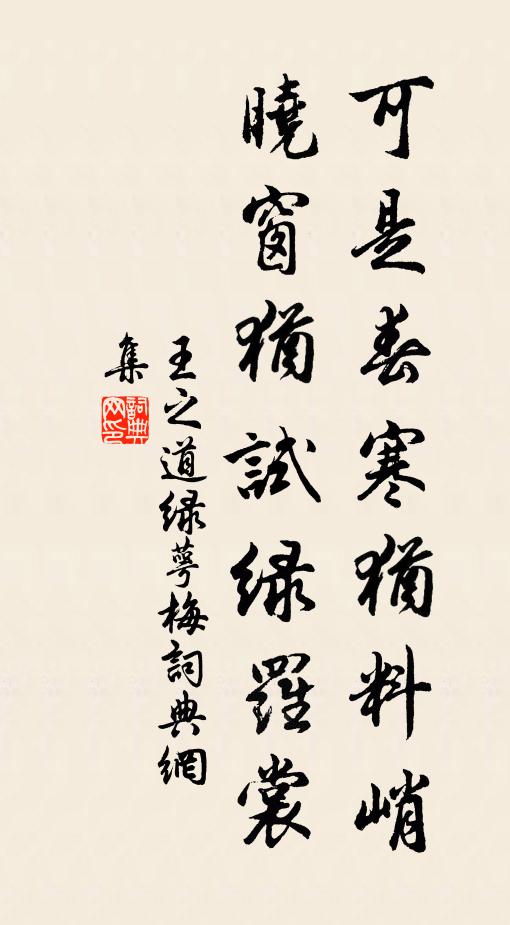 可是春寒猶料峭
曉窗猶試綠羅裳
王之道綠萼梅詞典網
集
詞典網印